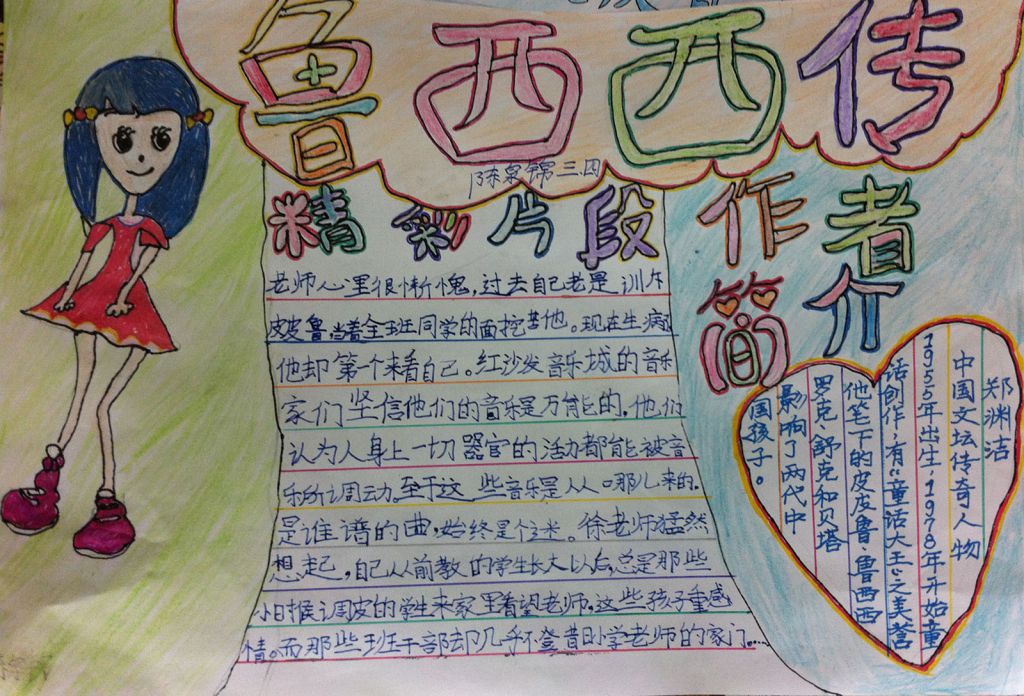 鲁西西传
陈泉锦三四
精彩片段
老师心里很惭愧,过去自己老是训斥
皮皮鲁,当着全班同学的面挖苦他。现在生病
他却第一个来看自己。红沙发音乐城的音乐
家们坚信他们的音乐是万能的。他们
认为人身上一切器官的活力都能被音
乐所调动。至于这些音乐是从哪儿来的。
是谁谱的曲,始终是个迷。徐老师猛然
想起,自己从前教的学生长大以后,总是那些
小时候调皮的学生来家里看望老师。这些孩子重感
情。而那些班干部却几乎不登昔日小学老师的家门....
作者简介
郑渊洁
中国文坛传奇人物
1955年出生,1978年开始童
话创作,有“童话大王”之美誉
他笔下的皮皮鲁、鲁西西
罗克、舒克和贝塔
影响了两代中
国孩子。